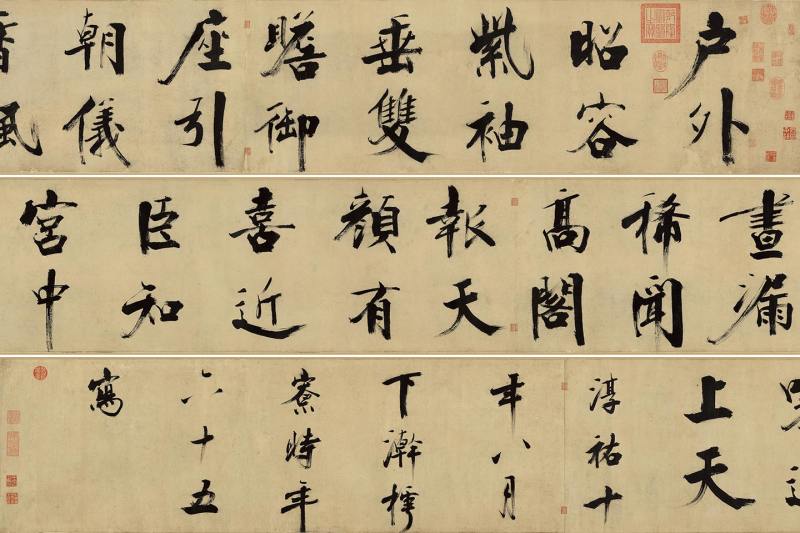 戶外
昭容
紫袖
垂雙
瞻御
座引
朝儀
晝漏
稀聞
高閣
報天
顏有
喜近
臣知
宮中
上天
淳祐十
年八月
下澣樗
寮時年
六十五
寫